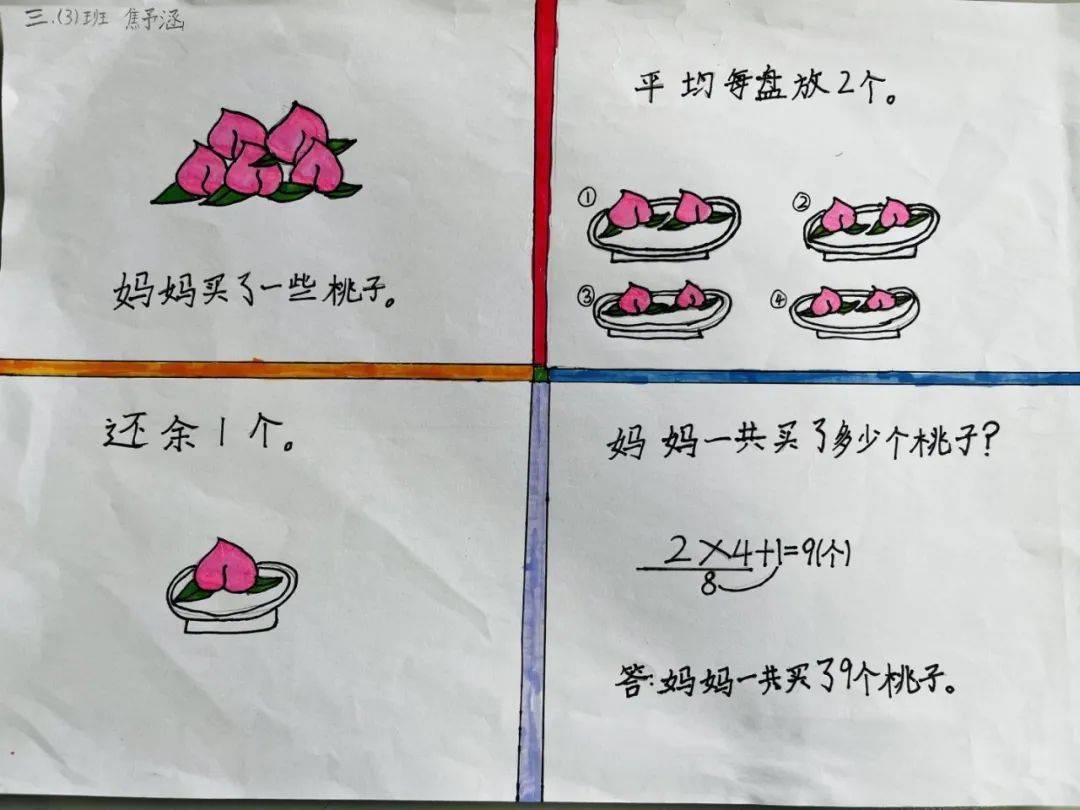 三.(3)班 焦予涵
妈妈买了一些桃子。
平均每盘放2个。
①
②
③
④
还余1个。
妈妈一共买了多少个桃子?
2×4+1=9(个)
8
答:妈妈一共买了9个桃子。